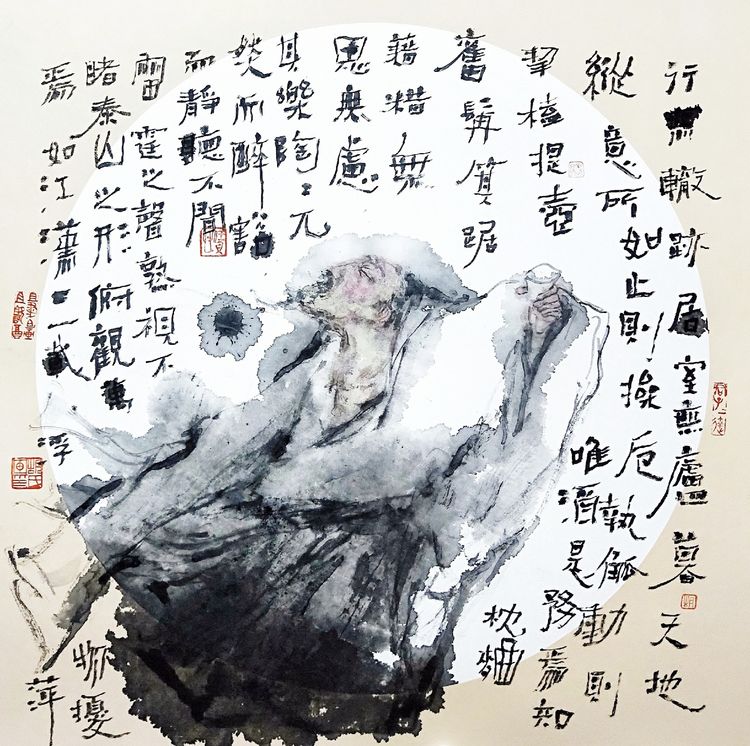 行無轍跡居室無廬暮天地
縱意所
如止則操卮
執觚動則
挈榼提壺
唯酒是務焉知
奮髯箕踞
枕麴
藉糟無
思無慮
其樂陶〻兀
然而醉豁
而靜聽不聞
雷霆之聲熟視不
睹泰山之形俯觀萬
物擾
焉如江漢三載浮
萍